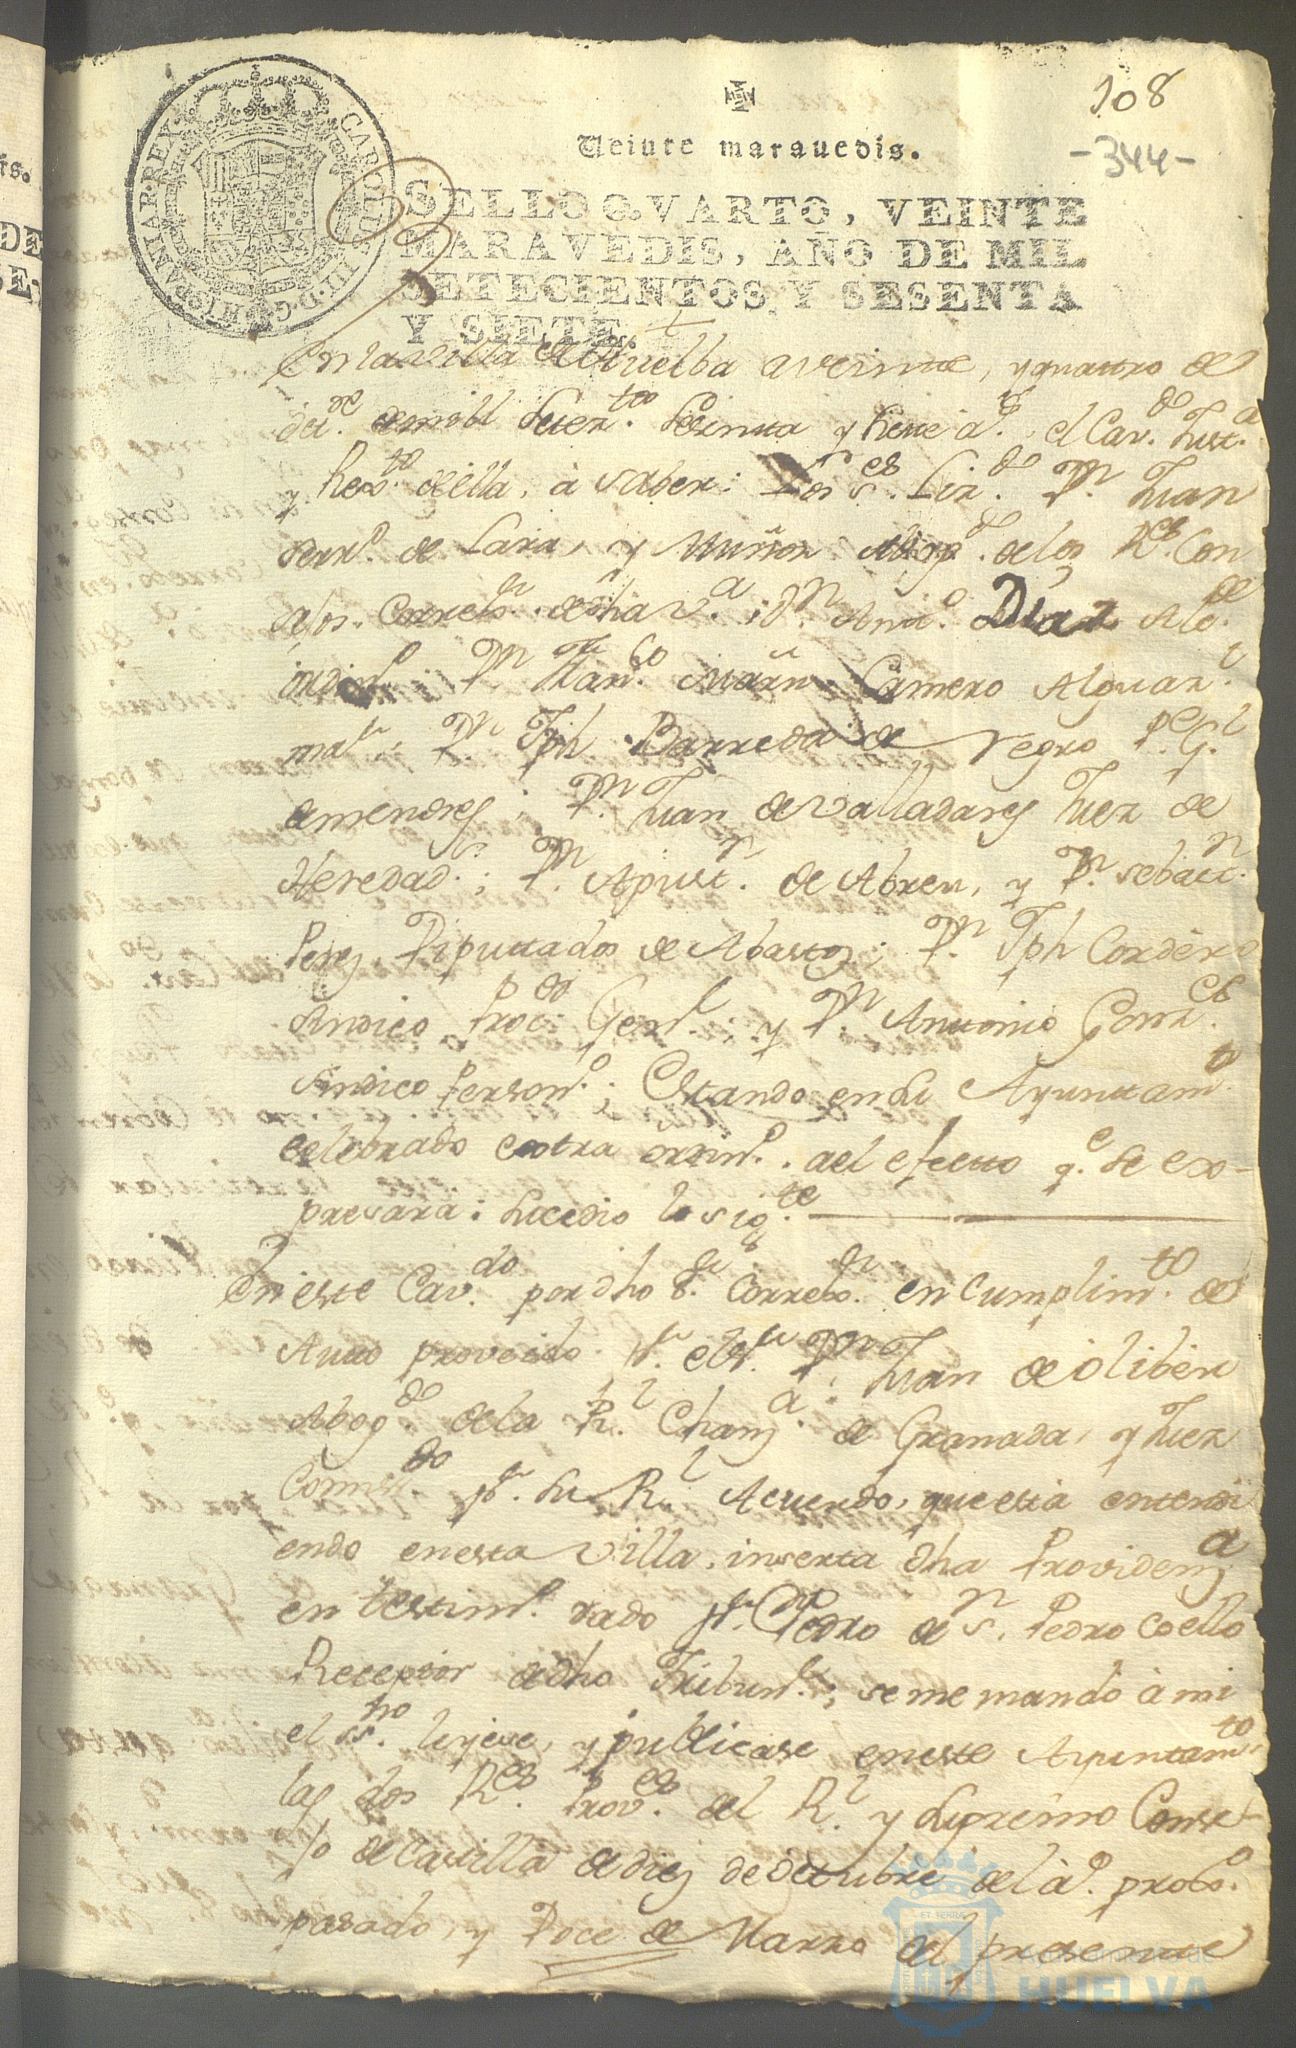 108
Veinte marauedis.
-344-
SELLO QVARTO, VEINTE
MARAVEDIS, AÑO DE MIL
SETECIENTOS Y SESENTA
Y SIETE.
CAROLUS III D G HISPANIAR REX
En la Villa de Huelba a veinte, y quattro de
de mill setez.tos sesenta y siete a.s el Cav.do Just.a
y Rex.to de ella, à saber: Los s.es Liz.do D.n Juan
Fern.o de Lara, y Muñoz Abog.do de los R.es Con
sejos Correx.or de dha v.a; D.n Ant.o Diaz Alc.de
ordin.o; D.n Fran.co Marn. Camero Alguaz.l
maior; D.n Jph Barreda de Negro P.e G.l
de menores; D.n Juan de Valladares Juez de
Heredad.s; D.n Agust.n de Abreu, y D.n Sebast.n
Perez Diputtados de Abastos; D.n Jph Cordero
Sindico Proc.or Gen.l; y D.n Antonio Gonz.es
Sindico Person.o; Estando en su Ayuntam.to
celebrado extra ordin.o al efectto q.e se ex-
presara: sucedio lo sig.te
En este Cav.do por dho S.r Correx.r en cumplim.to de
Autto proveido p.r el S.r D.n Juan de Oliber
Abog.do de la R.l Chanz.a de Granada, y Juez
Comis.do p.r su R.l Acuerdo, que esta entendi
endo en esta Villa, inserta dha Providenz.a
en testim.o dado p.r Pedro de S.n Pedro Coello
Receptor de dho Tribun.l; se me mando à mi
el ss.no leyese, y publicase en este Ayuntam.to
las dos R.es Prov.es del R.l y Supremo Conse-
jo de Castilla de diez de Octubre del a.o prox.o
pasado, y Doce de Marzo del presente
ET TERRÆ
Ayuntamiento de
HUELVA